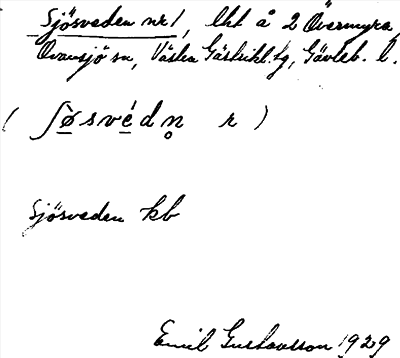 Sjösveden nr 1, lht å 2 Övermyra,
Ovansjö sn, Västra Gästrikl. tg, Gävleb. l.
( ʃø̱svéd n̥ r )
Sjösveden kb
Emil Gustavsson 1929